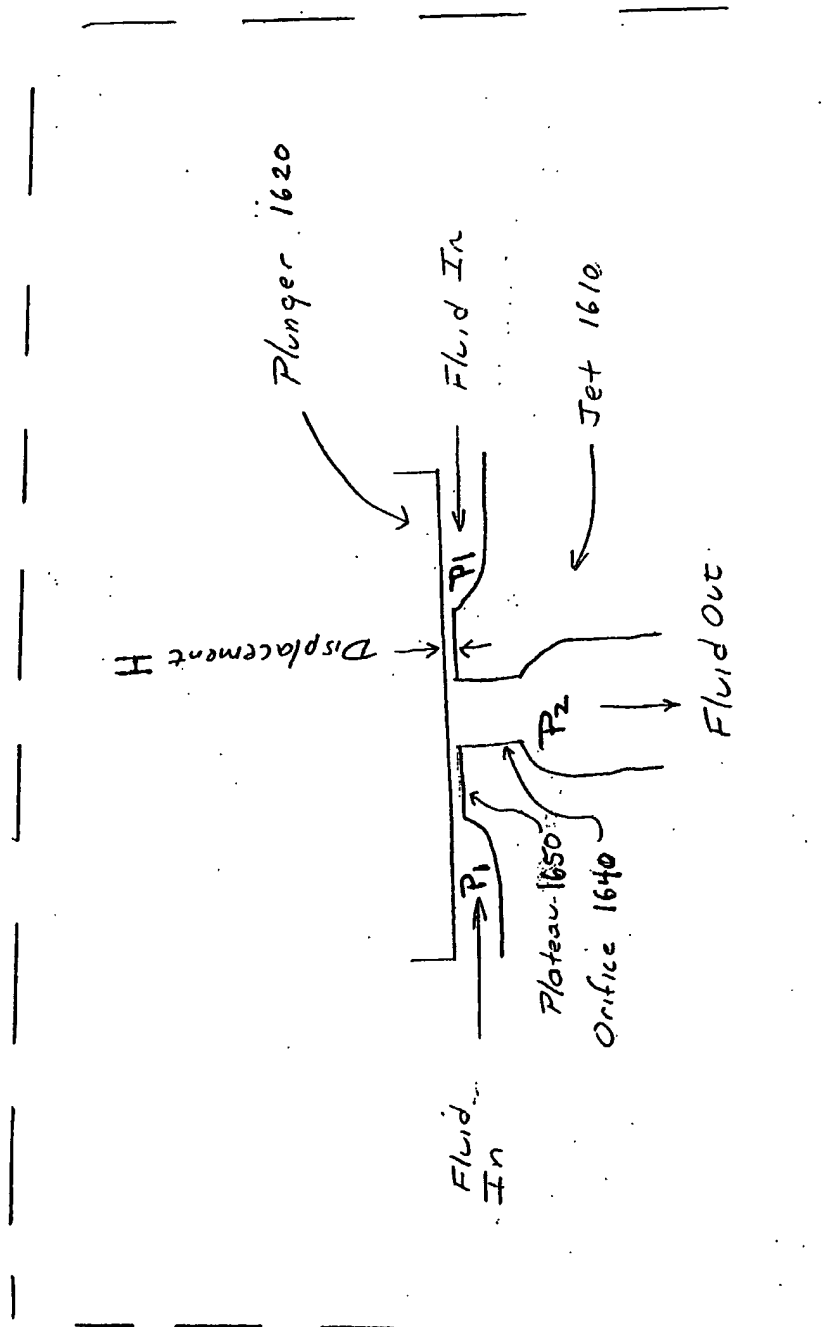 Plunger 1620
Fluid In
Jet 1610
Displacement
H
P1
P1
P2
Fluid Out
Plateau 1650
Orifice 1640
Fluid
In